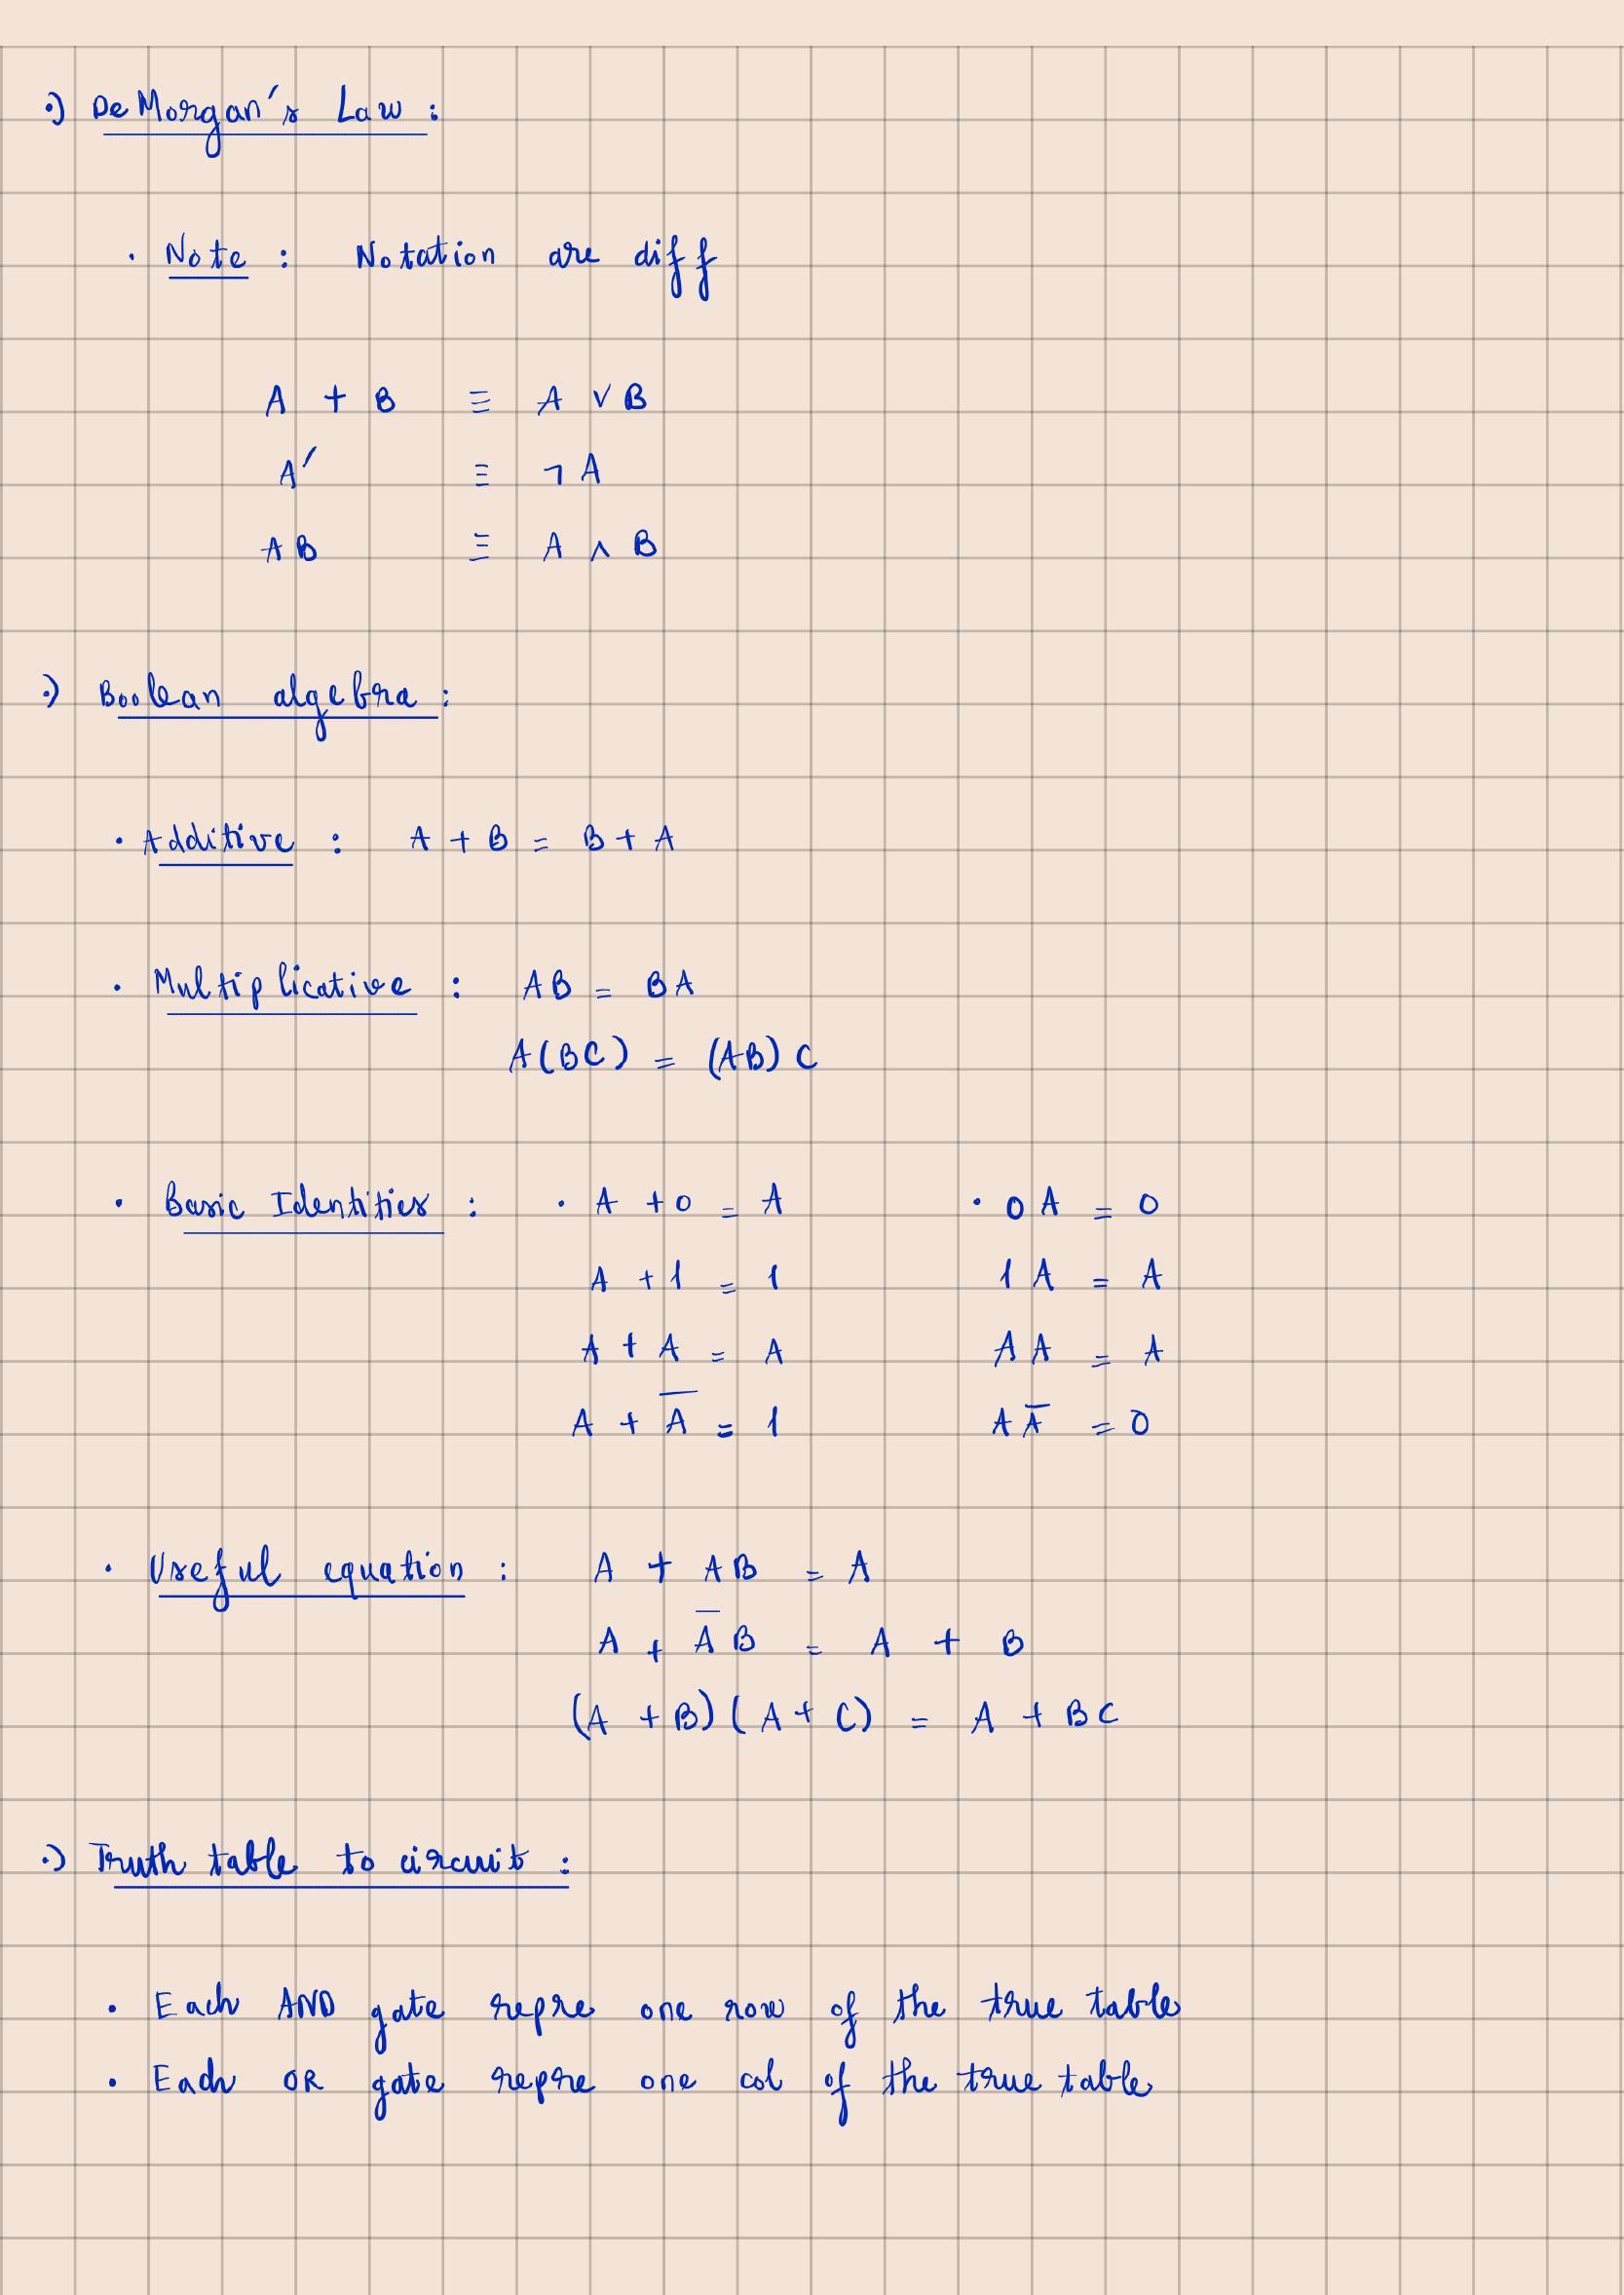 ·) DeMorgan's Law :
· Note : Notation are diff
A + B ≡ A ∨ B
A′ ≡ ¬ A
AB ≡ A ∧ B
·) Boolean algebra :
· Additive : A + B = B + A
· Multiplicative : AB = BA
A(BC) = (AB) C
· Basic Identities : · A + 0 = A · 0 A = 0
A + 1 = 1 1 A = A
A + A = A A A = A
A + A̅ = 1 A A̅ = 0
· Useful equation : A + AB = A
A + A̅ B = A + B
(A + B) (A + C) = A + BC
·) Truth table to circuit :
· Each AND gate repre one row of the true table
· Each OR gate repre one col of the true table